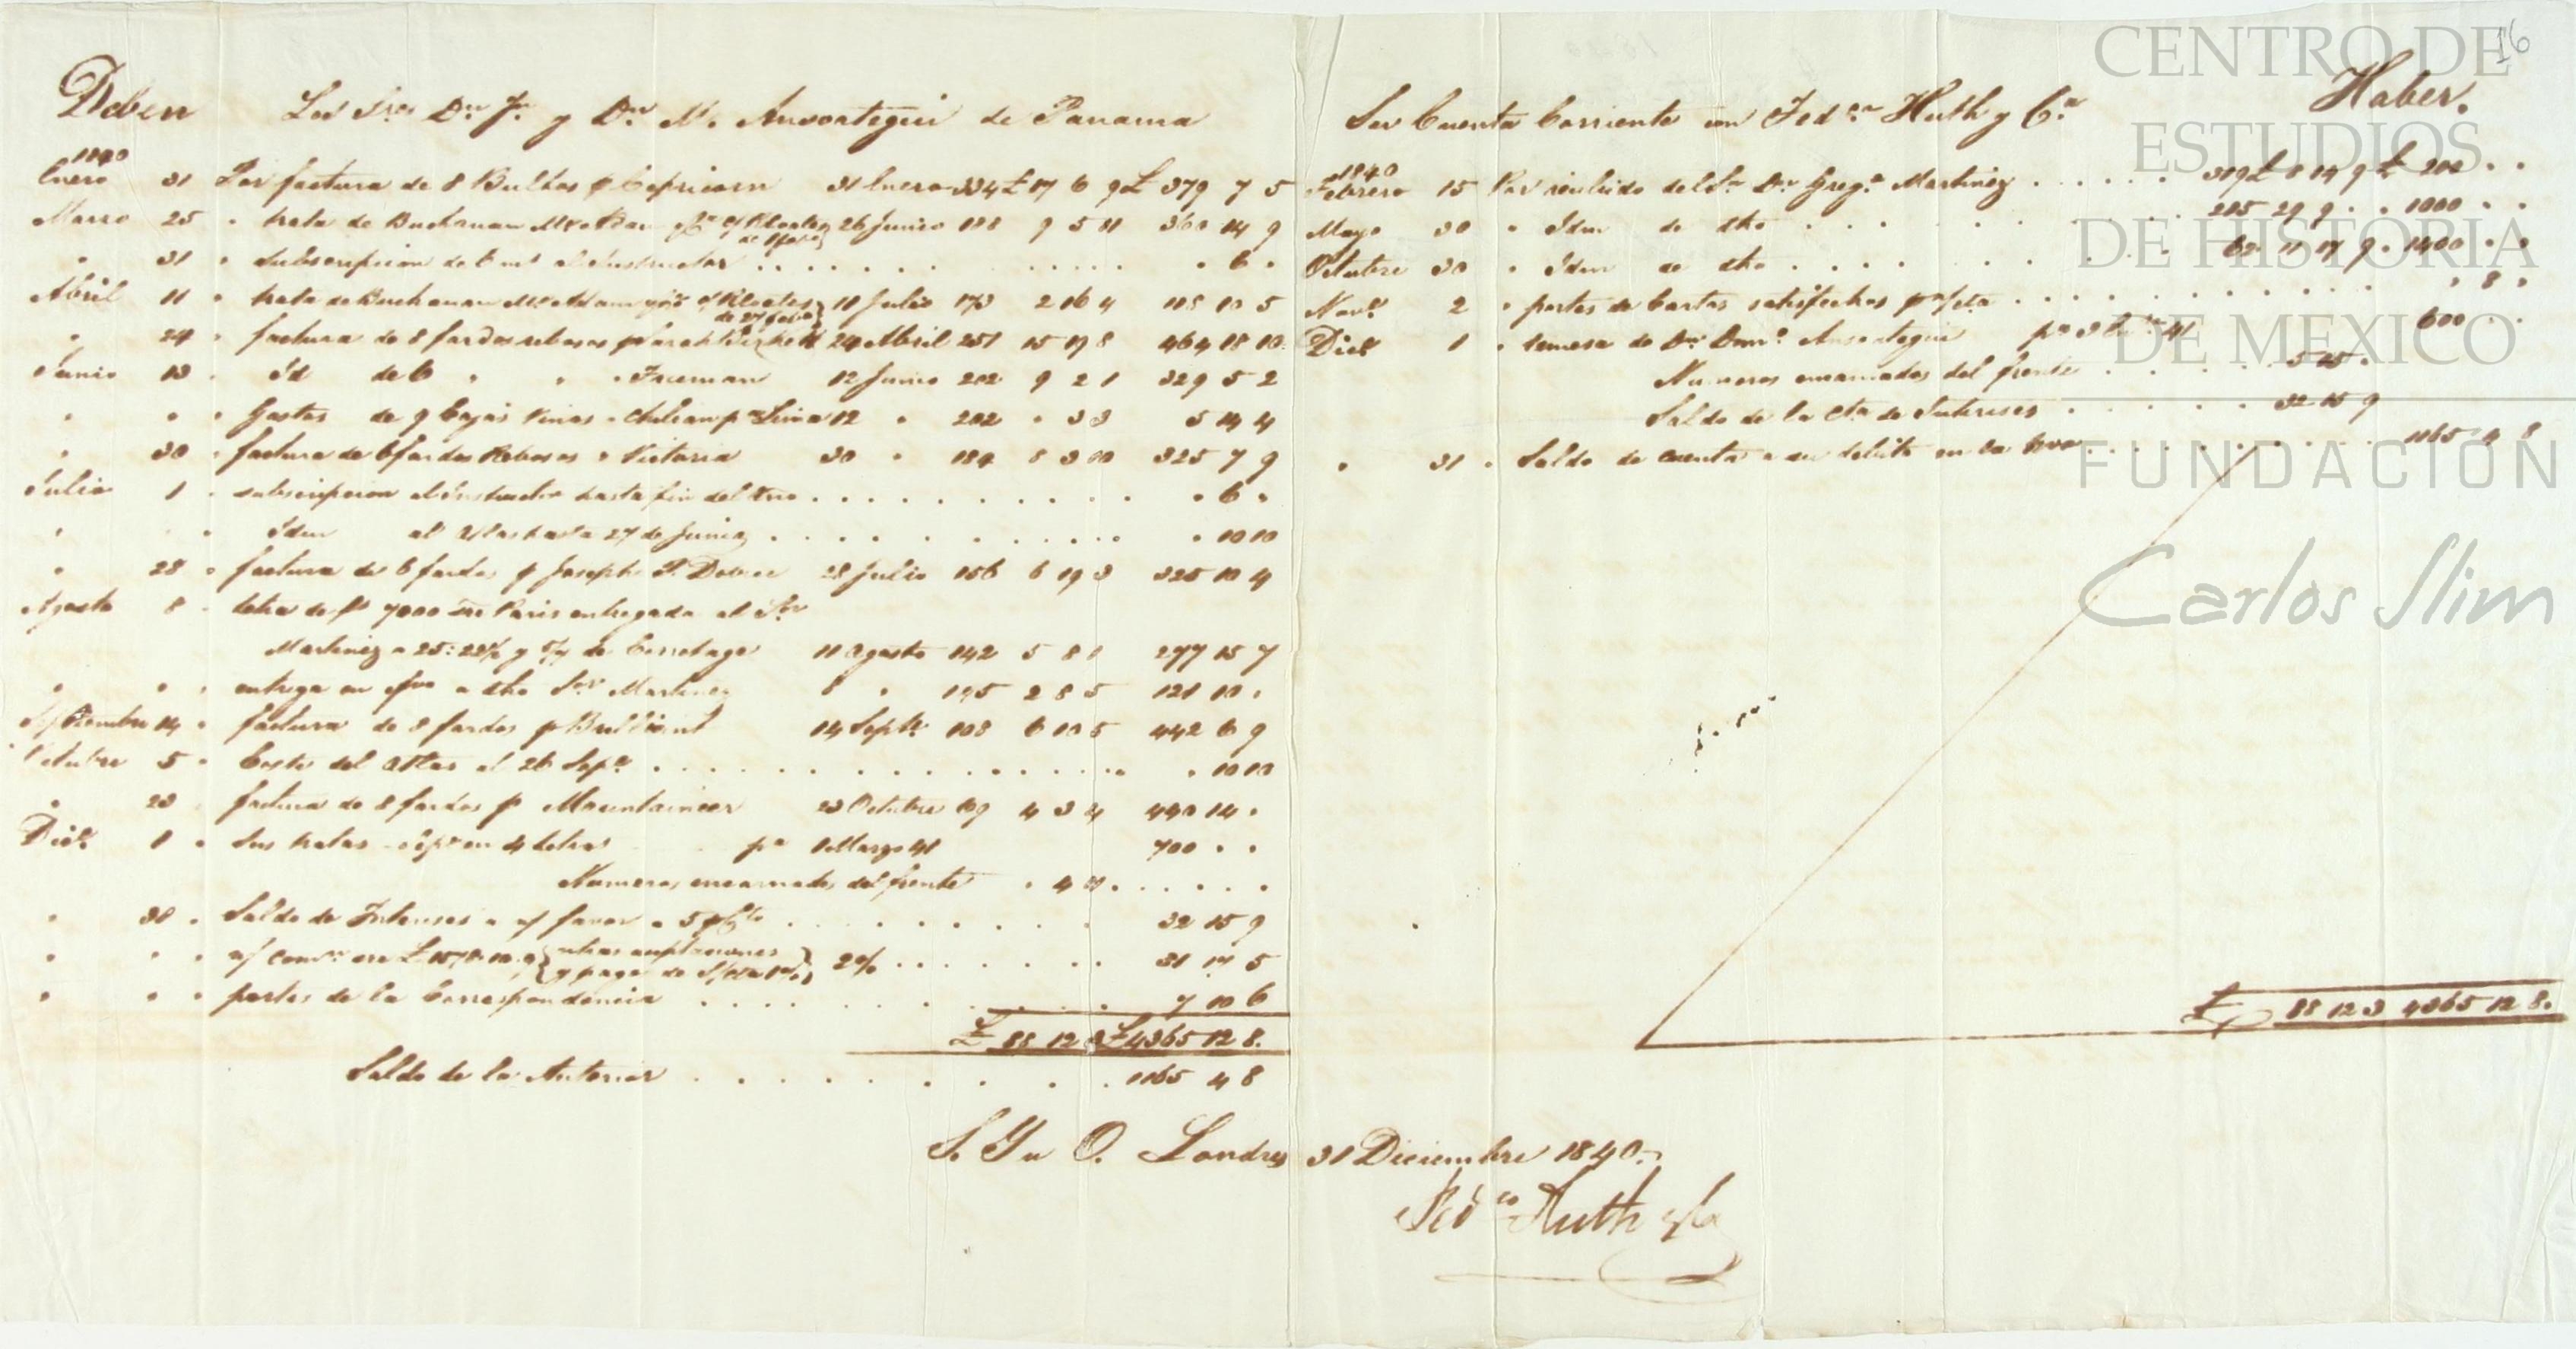 16
Deben Los Sres Dn Jn y Dn M. Ansoategui de Panama
1840
Enero 31 Por factura de 8 Bultos p Capricorn 31 Enero 334 £ 17 6 9 £ 379 7 5
Marzo 25 " trata de Buchanan 26 Junio 188 9 5 360 14 9
" 31 " subscripcion al Instructor . . . . " 6 "
Abril 11 " trata de Buchanan 11 Julio 173 2 16 4 118 10 5
" 24 " factura de 8 fardos rebosos p Sarah 24 Abril 251 15 19 8 464 18 10
Junio 13 " Id de 6 " " " Freeman 12 Junio 202 9 2 1 329 5 2
" " " Gastos de 9 Cajas Vinas " Chilean pa Lima 12 " 202 " 3 3 5 14 4
" 30 " factura de 6 fardos Rebosos " Victoria 30 " 184 8 3 10 325 7 9
Julio 1 " subscripcion al Instructor hasta fin del . . . . " 6 "
" " " Idem al Atlas hasta 27 de Junio . . . . " 10 10
" 28 " factura de 6 fardos p Joseph 28 Julio 156 6 19 3 325 10 4
Agosto 8 " letra de fs 7000 sre Paris entregada al Sor
Martinez a 25:22½ y de Corretage 11 Agosto 142 5 8 1 277 15 7
" " " entrega en efvo a dho Sor Martinez 8 " 145 2 8 5 121 10 "
Septiembre 14 " factura de 8 fardos p Brilliant 14 Septe 108 6 10 5 442 6 9
Octubre 5 " Costo del Atlas al 26 Sepe . . . . " 10 10
" 23 " factura de 8 fardos p Mountaineer 23 Octubre 69 4 3 4 440 14 "
Dice 1 " Sus tratas en 4 letras pa 1 Marzo 41 700 " "
Numeros encarnados del frente " 4 11 . . . .
" 30 " Saldo de Intereses a n/ favor a 5 p Cto . . . . 32 15 9
" " " n/ comon sre £ 1578.10.9 { otras y pagos de } 2% . . . . 31 17 5
" " " portes de la Correspondencia . . . . 7 10 6
£ 88 12 3 £ 4365 12 8.
Saldo de la Anterior . . . . 1165 4 8
Su Cuenta Corriente con Fedco Huth y Ca Haber.
1840
Febrero 15 Por recibido del Sr Dn Grego Martinez . . . . 319 £ 8 14 9 £ 200 " "
Mayo 30 " Idem de dho . . . . 215 29 9 " " 1000 " "
Octubre 30 " Idem de dho . . . . 62 11 17 9 " 1400 " "
Nove 2 " portes de Cartas satisfechos . . . . " 8 "
Dice 1 " remesa de Dn Domo Ansoategui pa 3 41 600 " "
Numeros encarnados del frente . . . . 5 15 "
Saldo de la Cta de Intereses . . . . 32 15 9
" 31 " Saldo de cuenta a su debito en la nva . . . . 1165 4 8
£ 88 12 3 4365 12 8.
S. Y u O. Londres 31 Diciembre 1840.
Fedco Huth y Ca
CENTRO DE
ESTUDIOS
DE HISTORIA
DE MEXICO
FUNDACIÓN
Carlos Slim